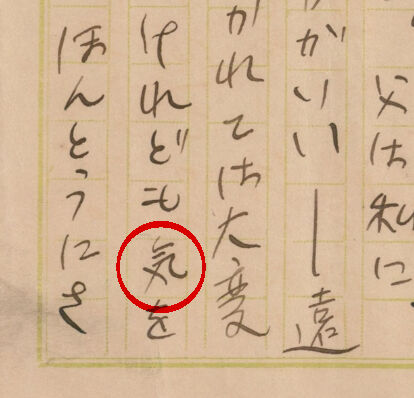 父は私に
がいい―遠
かれては大変
けれども気を
ほんとうにさ